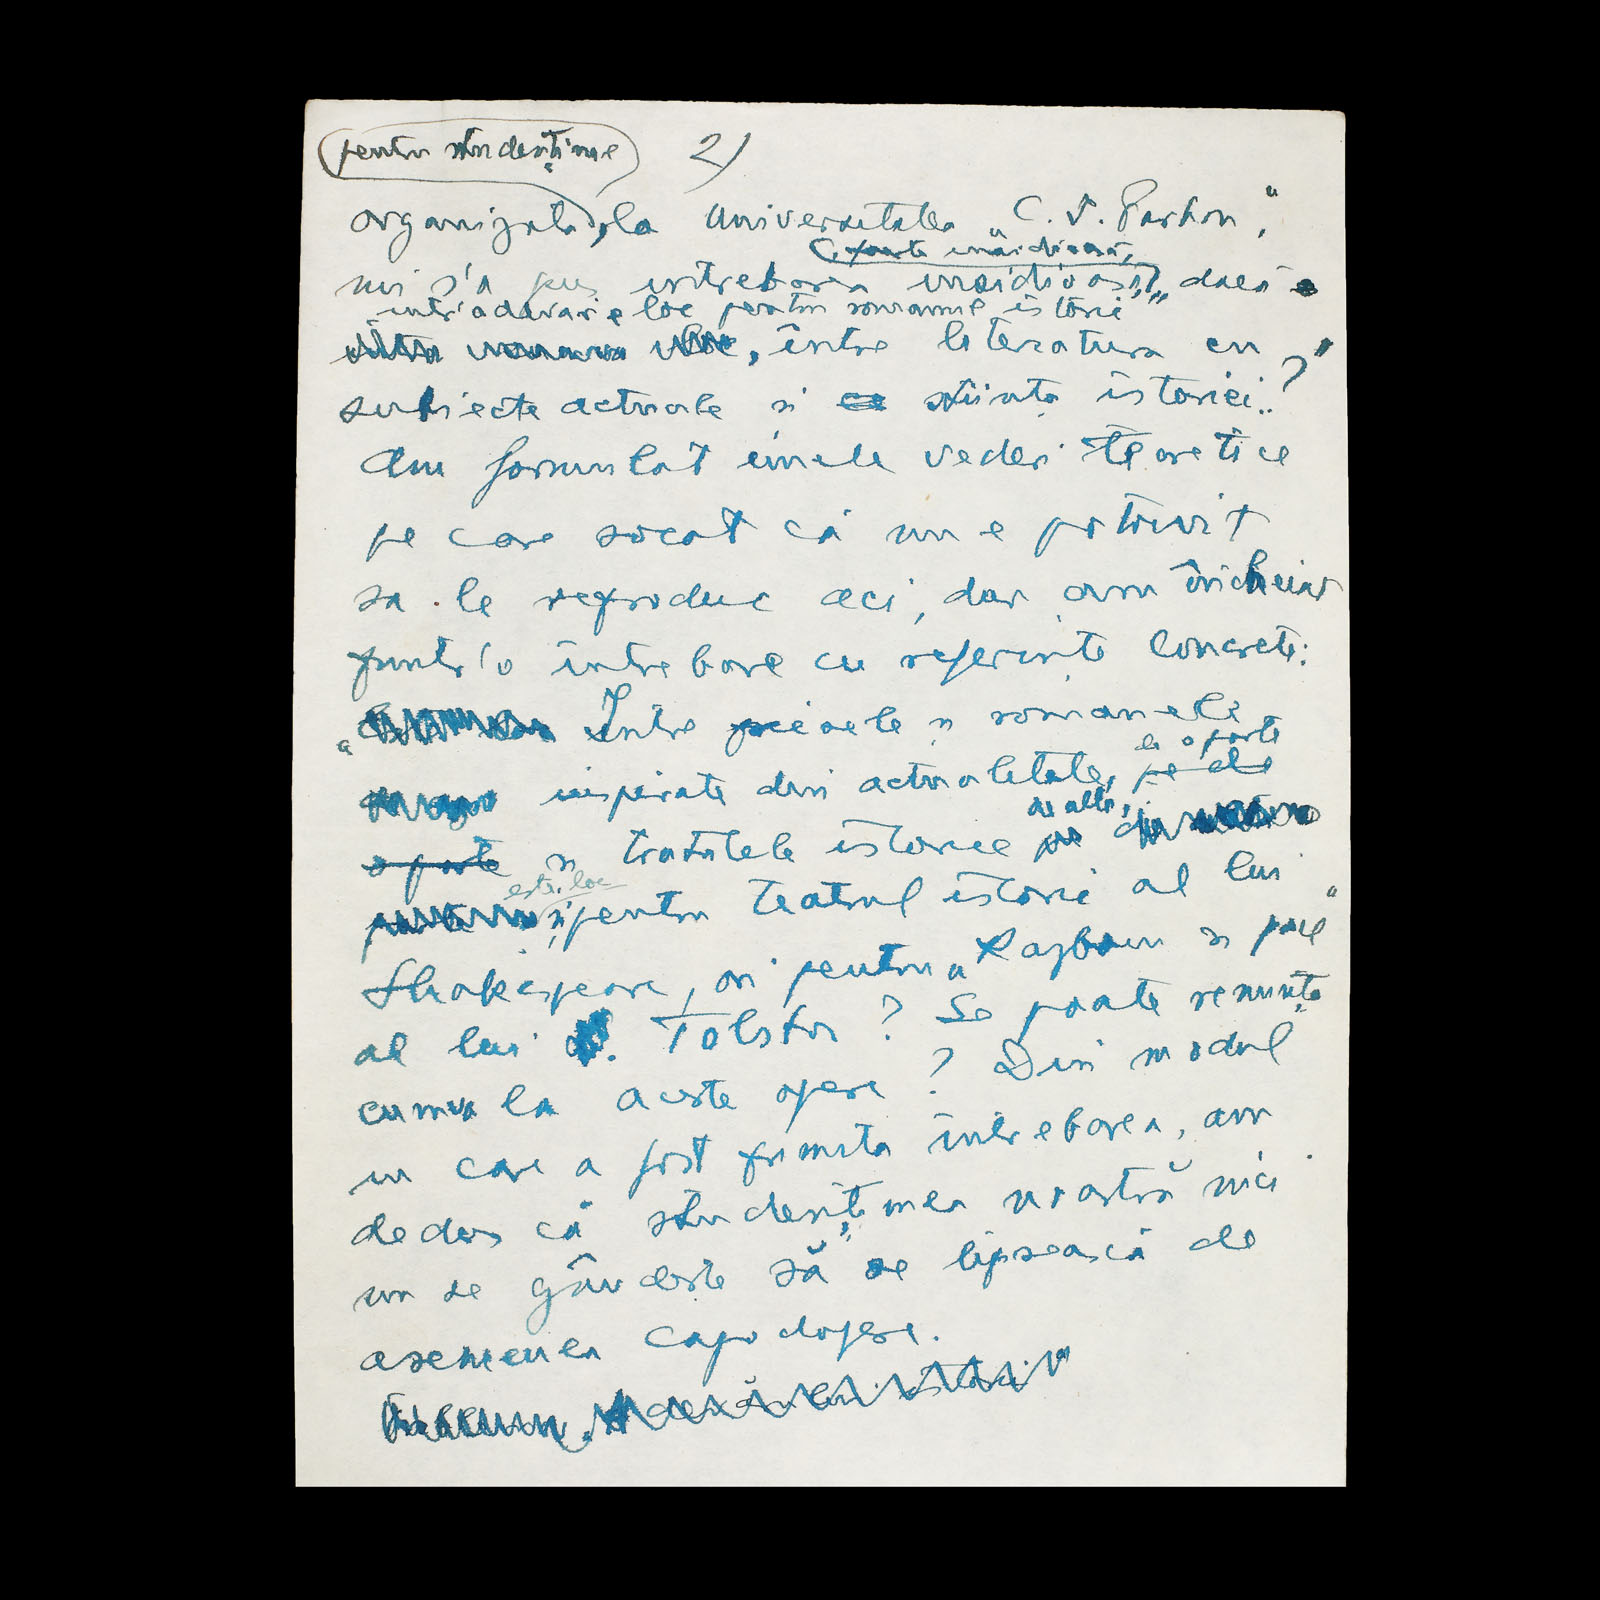 pentru studențime 2)
organizată, la Universitatea „C. I. Parhon",
foarte insidioasă,
mi s'a pus întrebarea insidioasă, dacă e
„într'adevăr e loc pentru romanul istoric
, între literatura cu
subiecte actuale și ca știința istoriei"?
Am formulat unele vederi teoretice
pe care socot că nu e potrivit
sa le reproduc aci, dar am încheiat
printr'o întrebare cu referințe concrete:
„Intre piesele și romanele
de o parte
inspirate din actualitate, pe de
de alta,
o parte și tratatele istorice pe
este loc
și pentru teatrul istoric al lui
Shakespeare, ori pentru „Razboiu și pace"
al lui Tolstoi? Se poate renunța
cumva la aceste opere? Din modul
in care a fost primita întrebarea, am
dedus că studențimea noastră nici
nu se gândește să se lipsească de
asemenea capodopere.